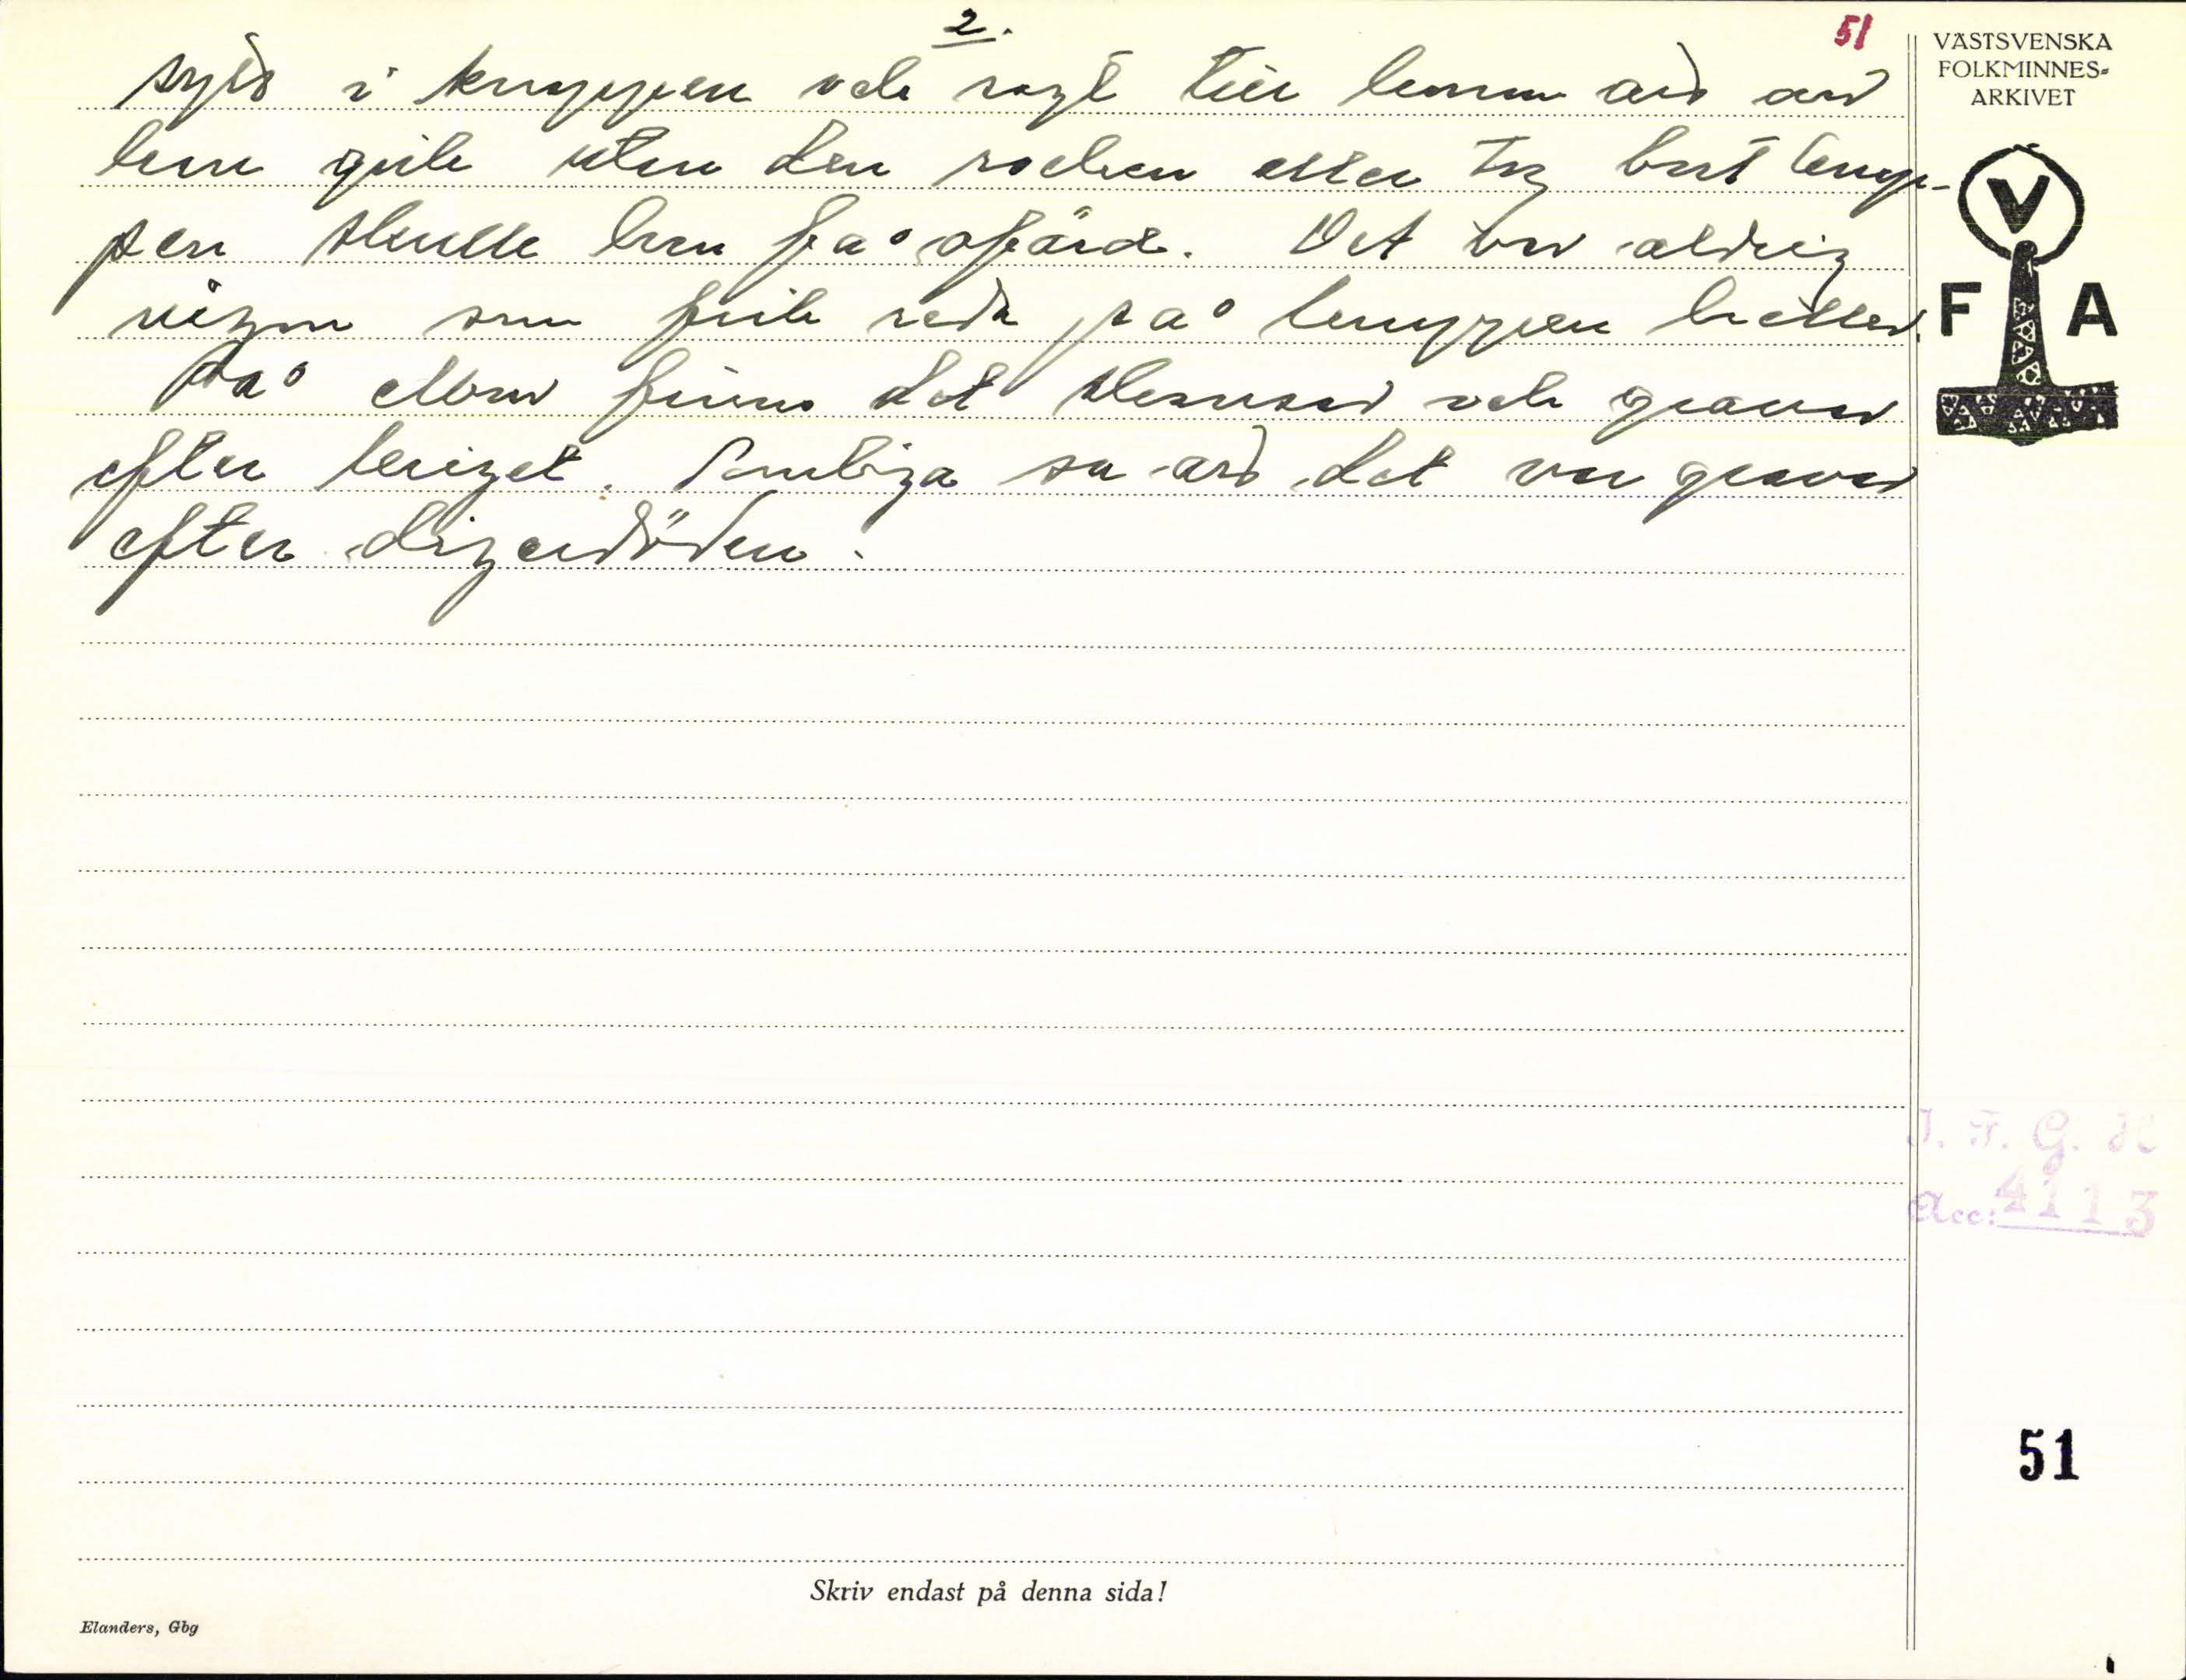 2.
51
sytt i knuppen och sagt till henne att om
hon gick utan den rocken eller tog bort knup-
pen skulle hon få ofärd. Det var aldrig
någon som fick reda på knuppen heller.
På  finns det  och gravar
efter kriget. Somliga sa att det var gravar
efter digerdöden.
VÄSTSVENSKA
FOLKMINNES-
ARKIVET
V
F A
I. F. G. H
Acc: 4113
51
Skriv endast på denna sida!
Elanders, Gbg